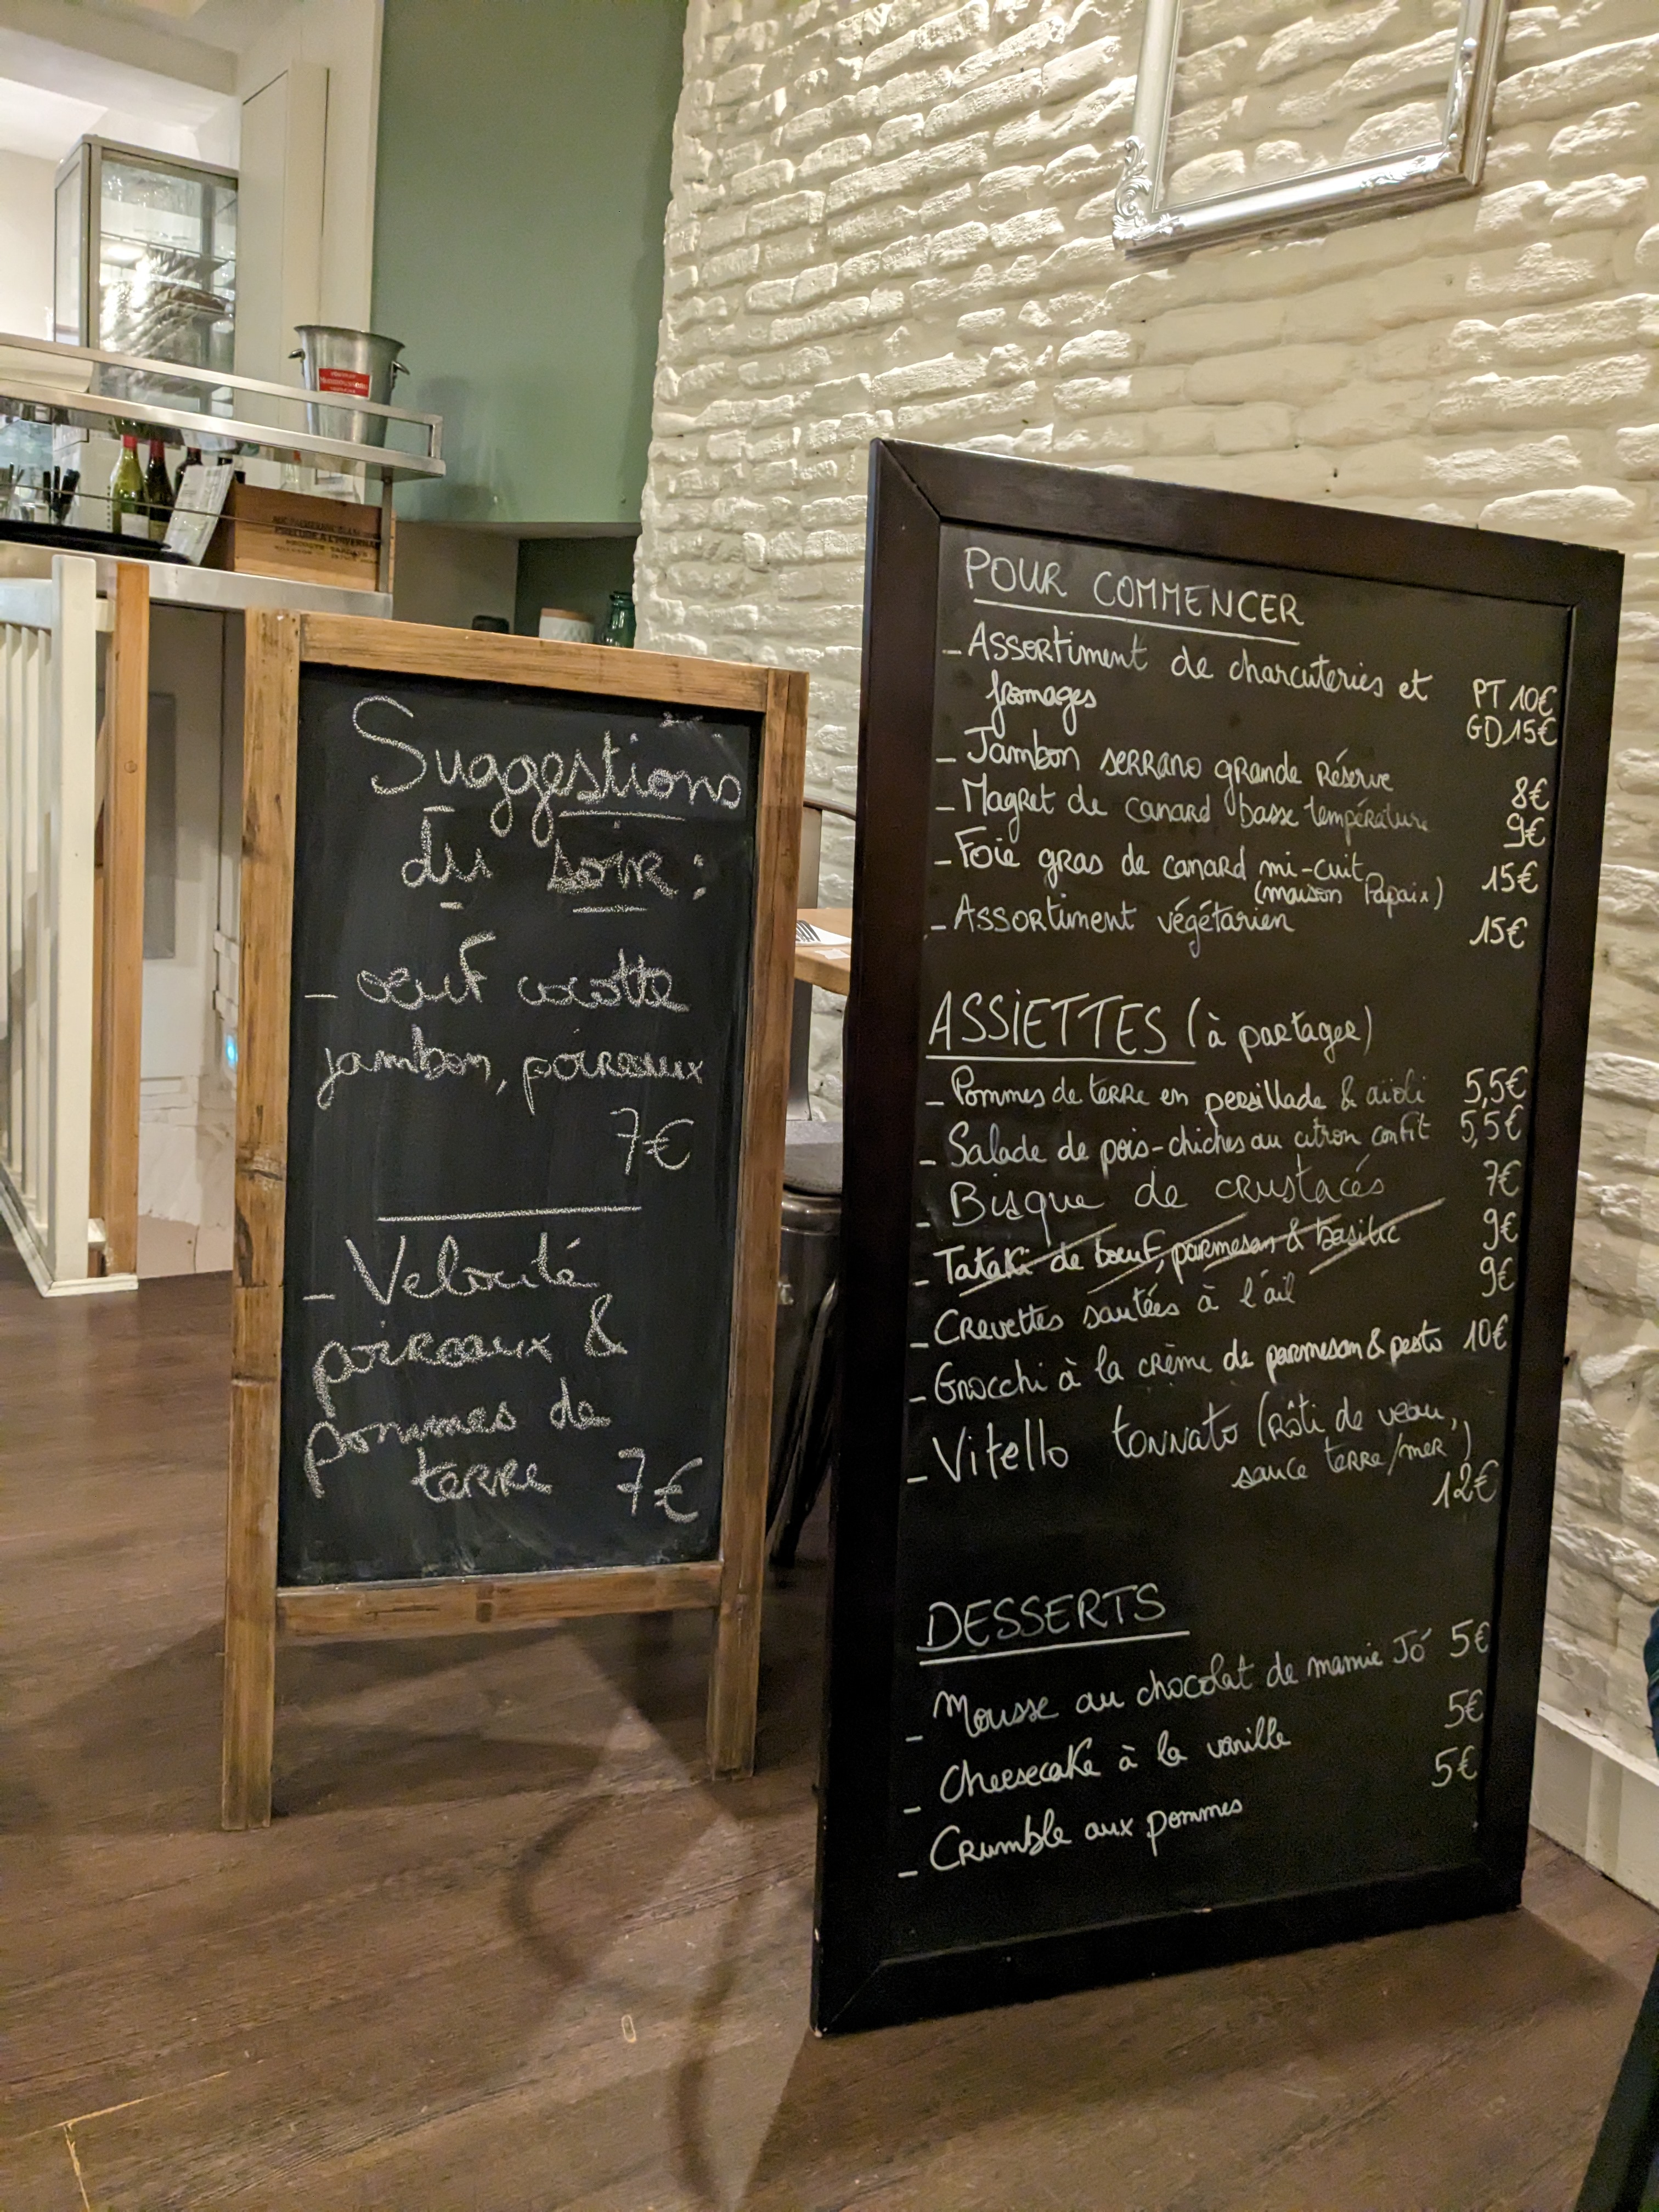 Suggestions
du soir :
- oeuf cocotte
jambon, poireaux
7€
- Velouté
poireaux &
pommes de
terre 7€
POUR COMMENCER
- Assortiment de charcuteries et
fromages PT 10€
GD 15€
- Jambon serrano grande réserve 8€
- Magret de canard basse température 9€
- Foie gras de canard mi-cuit 15€
(maison Papaix)
- Assortiment végétarien 15€
ASSIETTES (à partager)
- Pommes de terre en persillade & aïoli 5,5€
- Salade de pois-chiches au citron confit 5,5€
- Bisque de crustacés 7€
- Tataki de boeuf, parmesan & basilic 9€
- Crevettes sautées à l'ail 9€
- Gnocchi à la crème de parmesan & pesto 10€
- Vitello tonnato (rôti de veau,
sauce terre/mer)
12€
DESSERTS
- Mousse au chocolat de mamie Jó 5€
- Cheesecake à la vanille 5€
- Crumble aux pommes 5€